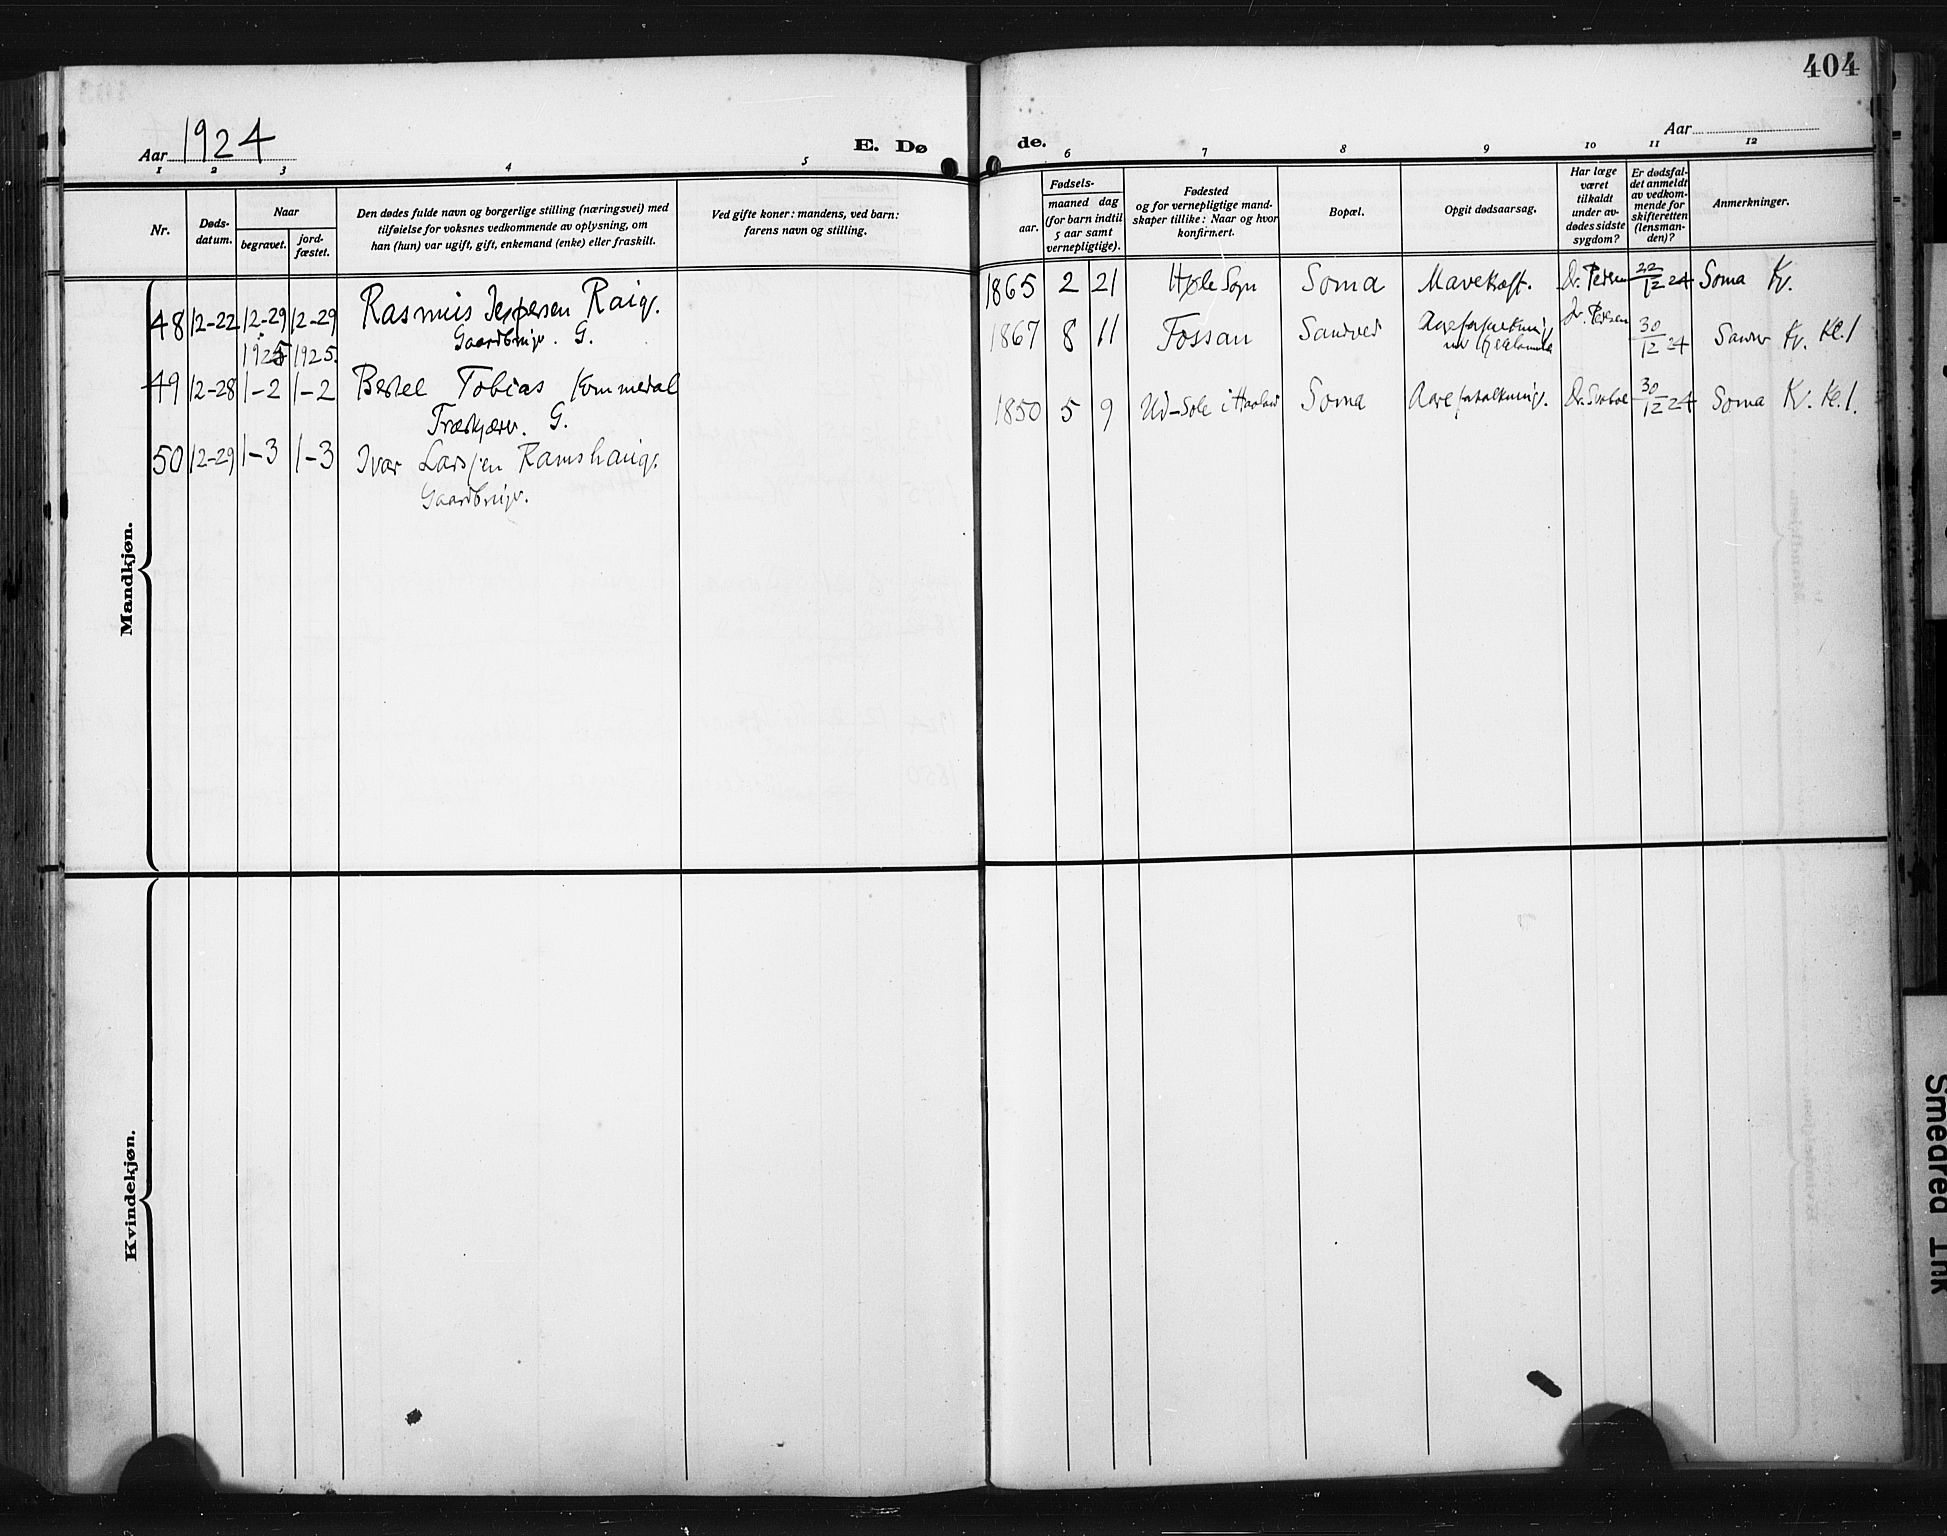 404
Aar 1924
E. Dø
de.
Aar
1 2 3 4 5
6 7 8 9 10 11 12
Nr.
Døds-
datum.
Naar
begravet.
jord-
fæstet.
Den dødes fulde navn og borgerlige stilling (næringsvei) med
tilføielse for voksnes vedkommende av oplysning, om
han (hun) var ugift, gift, enkemand (enke) eller fraskilt.
Ved gifte koner: mandens, ved barn:
farens navn og stilling.
Fødsels-
aar.
maaned dag
(for barn indtil
5 aar samt
vernepligtige).
Fødested
og for vernepligtige mand-
skaper tillike: Naar og hvor
konfirmert.
Bopæl.
Opgit dødsaarsag.
Har læge
været
tilkaldt
under av-
dødes sidste
sygdom?
Er dødsfal-
det anmeldt
av vedkom-
mende for
skifteretten
(lensman-
den)?
Anmerkninger.
Mandkjøn.
48 12-22 12-29 12-29 Rasmus Jespersen Raig.
Gaardbruger. G.
1865 2 21 Høle Sogn Soma Mavekræft. Dr. Pedersen 22/12 24 Soma Kr.
1925 1925.
49 12-28 1-2 1-2 Bertel Tobias Kommedal
G.
1867 8 11 Fossan Sandved Dr. Pedersen 30/12 24 Kr. Kl. 1
50 12-29 1-3 1-3 Ivar Larsen Ramshaug.
Gaardbruger.
1850 5 9 Ud-Sole i Haaland Soma Aareforkalkning. 30/12 24 Soma Kr. Kl. 1.
Kvindekjøn.
Smeared Ink